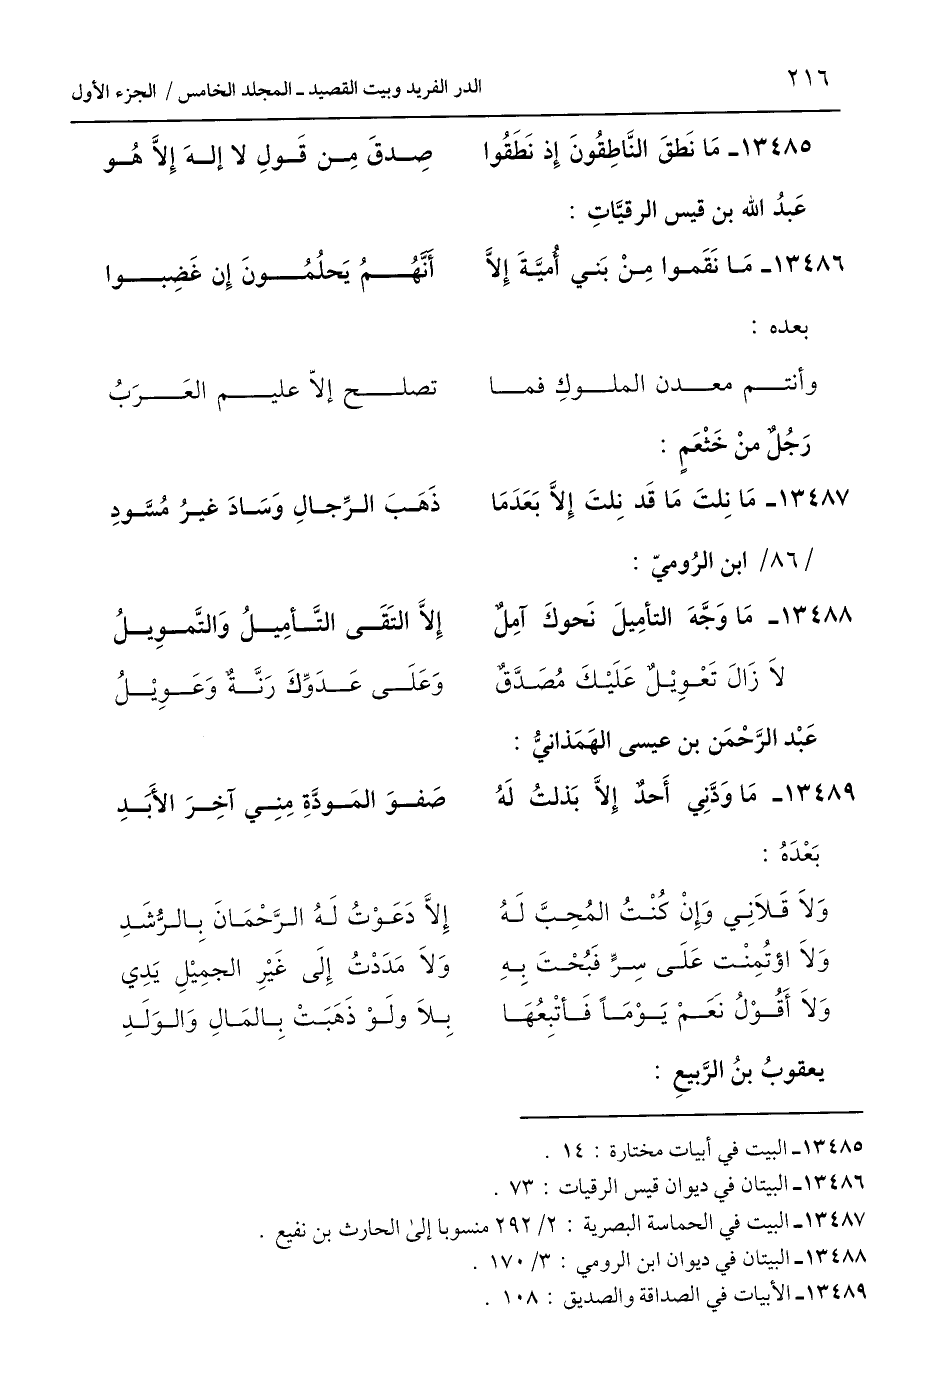 ٢١٦
الدر الفريد وبيت القصيد ـ المجلد الخامس / الجزء الأول
١٣٤٨٥ـ مَا نَطَقَ النَّاطِقُونَ إِذ نَطَقُوا صِـدقَ مِـن قَـولِ لا إلـهَ إِلاَّ هُـو
عَبدُ الله بن قيس الرقيَّاتِ :
١٣٤٨٦ـ مَـا نَقَمـوا مِـنْ بَنـي أُميَّـةَ إِلاَّ أَنَّهُـــمُ يَحلُمُـــونَ إن غَضِبـــوا
بعده :
وأنتـــم معـــدن الملـــوكِ فمـــا تصلـــح إلاّ عليـــم العَـــرَبُ
رَجُلٌ منْ خَثْعَمٍ :
١٣٤٨٧ـ مَا نِلتَ مَا قَد نِلتَ إِلاَّ بَعَدَمَا ذَهَبَ الـرِّجالِ وَسَـادَ غيرُ مُسَّـودِ
/ ٨٦/ ابن الرُوميّ :
١٣٤٨٨ـ مَا وَجَّهَ التأميلَ نَحوكَ آمِلٌ إِلاَّ التَقَـى التَّـأميـلُ وَالتَّمـويـلُ
لاَ زَالَ تَعْوِيْـلٌ عَلَيْـكَ مُصَـدَّقٌ وَعَلَـى عَـدَوِّكَ رَنَّـةٌ وَعَـوِيْـلُ
عَبْد الرَّحْمَن بن عيسى الهَمَذانيُّ :
١٣٤٨٩ـ مَا وَدَّنِي أَحدٌ إِلاَّ بَذلتُ لَهُ صَفـوَ المَـودَّةِ مِنـي آخـرَ الأَبَـدِ
بَعْدَهُ :
وَلاَ قَـلاَنِـي وَإِنْ كُنْـتُ المُحِـبَّ لَـهُ إِلاَّ دَعَـوْتُ لَـهُ الـرَّحْمَـانَ بِـالـرُّشَـدِ
وَلاَ اؤتُمِنْـت عَلَـى سِـرٍّ فَبُحْـتَ بِـهِ وَلاَ مَدَدْتُ إِلَى غَيْرِ الجمِيْلِ يَدِي
وَلاَ أَقُـوْلُ نَعَـمْ يَـوْمَـاً فَـأتْبِعُهَـا بِـلاَ ولَـوْ ذَهَبَـتْ بِـالمَـالِ وَالـوَلَـدِ
يعقوبُ بنُ الرَّبيعِ :
١٣٤٨٥ـ البيت في أبيات مختارة : ١٤ .
١٣٤٨٦ـ البيتان في ديوان قيس الرقيات : ٧٣ .
١٣٤٨٧ـ البيت في الحماسة البصرية : ٢/ ٢٩٢ منسوبا إلىٰ الحارث بن نفيع .
١٣٤٨٨ـ البيتان في ديوان ابن الرومي : ٣/ ١٧٠ .
١٣٤٨٩ـ الأبيات في الصداقة والصديق : ١٠٨ .